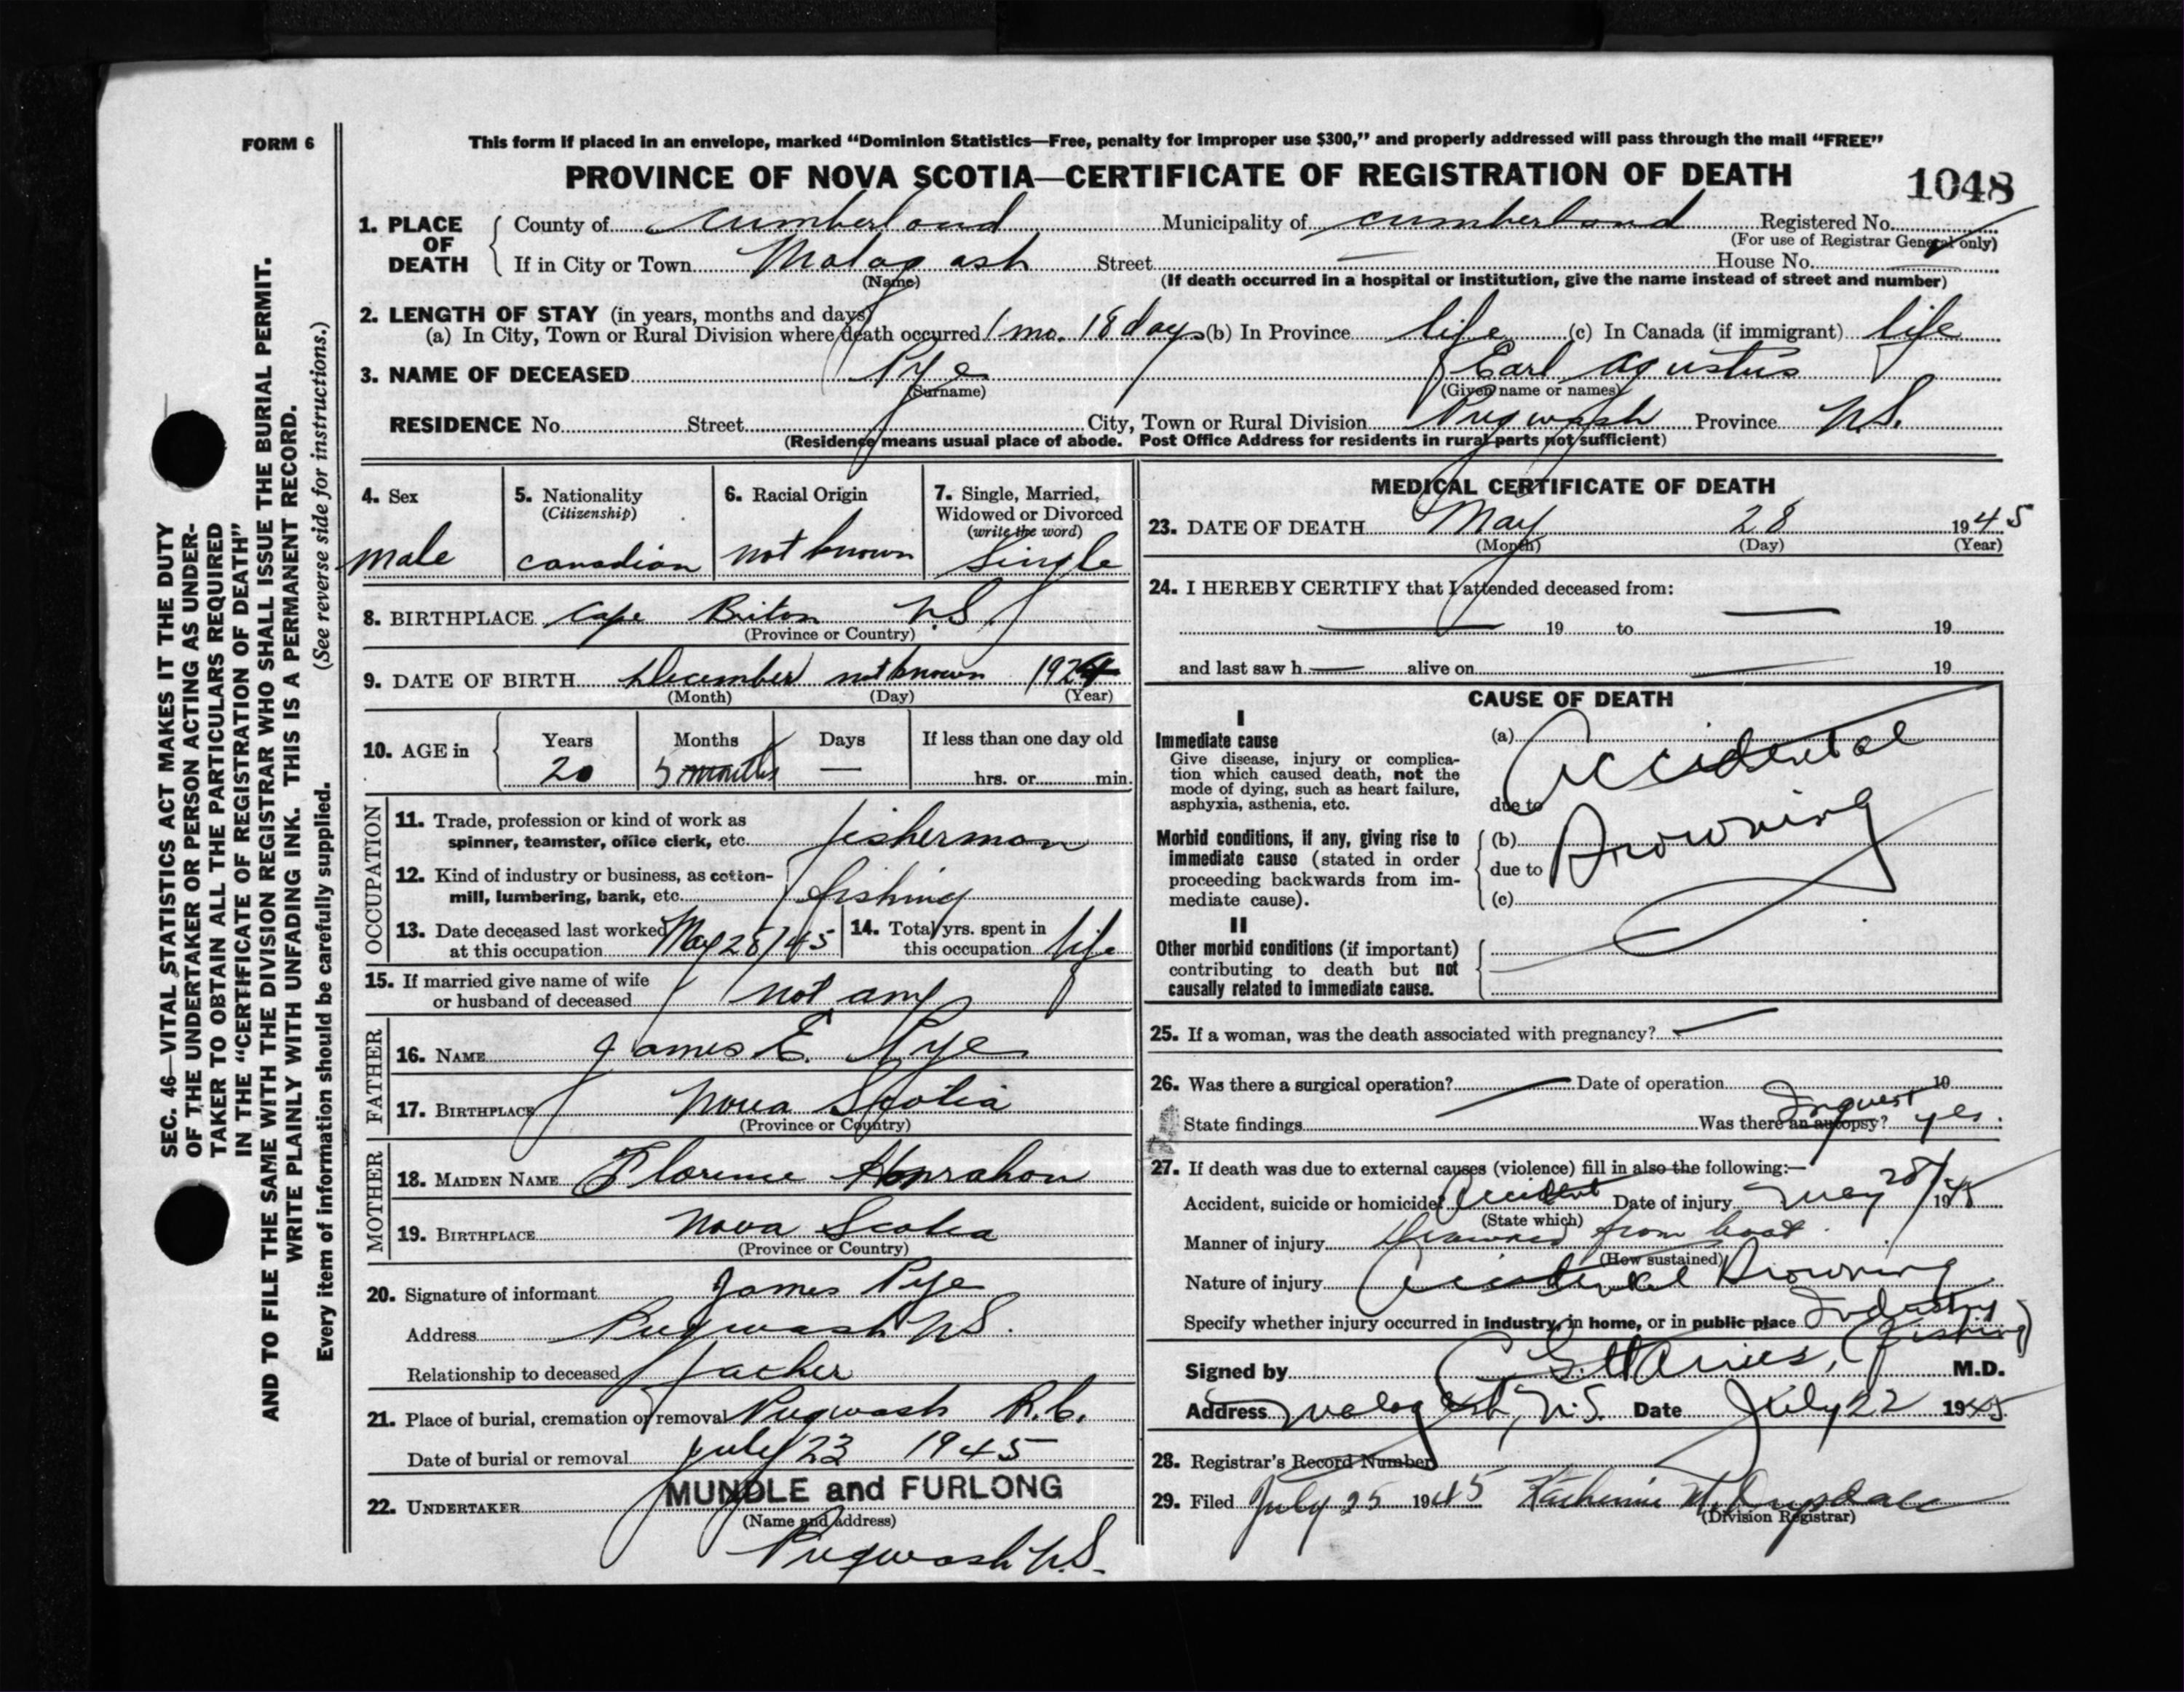 FORM 6
This form if placed in an envelope, marked “Dominion Statistics—Free, penalty for improper use $300,” and properly addressed will pass through the mail “FREE”
PROVINCE OF NOVA SCOTIA—CERTIFICATE OF REGISTRATION OF DEATH
1048
1. PLACE OF DEATH
County of cumberland Municipality of cumberland Registered No.
(For use of Registrar General only)
If in City or Town Malagash Street — House No. —
(Name)
(If death occurred in a hospital or institution, give the name instead of street and number)
2. LENGTH OF STAY (in years, months and days)
(a) In City, Town or Rural Division where death occurred 1 mo. 18 days (b) In Province life (c) In Canada (if immigrant) life
3. NAME OF DECEASED Pye Earl Agustus
(Surname) (Given name or names)
RESIDENCE No. Street City, Town or Rural Division Pugwash Province N.S.
(Residence means usual place of abode. Post Office Address for residents in rural parts not sufficient)
4. Sex
male
5. Nationality
(Citizenship)
canadian
6. Racial Origin
not known
7. Single, Married, Widowed or Divorced
(write the word)
Single
8. BIRTHPLACE Cape Briton N.S.
(Province or Country)
9. DATE OF BIRTH December not known 1924
(Month) (Day) (Year)
10. AGE in
Years Months Days If less than one day old
20 5 months — hrs. or min.
OCCUPATION
11. Trade, profession or kind of work as
spinner, teamster, office clerk, etc. fisherman
12. Kind of industry or business, as cotton-
mill, lumbering, bank, etc. fishing
13. Date deceased last worked
at this occupation May 28/45
14. Total yrs. spent in
this occupation life
15. If married give name of wife
or husband of deceased not any
FATHER
16. NAME James E. Pye
17. BIRTHPLACE Nova Scotia
(Province or Country)
MOTHER
18. MAIDEN NAME Florence Hanrahan
19. BIRTHPLACE Nova Scotia
(Province or Country)
20. Signature of informant James Pye
Address Pugwash N.S.
Relationship to deceased father
21. Place of burial, cremation or removal Pugwash R.C.
Date of burial or removal July 23 1945
22. UNDERTAKER MUNDLE and FURLONG
(Name and address)
Pugwash N.S.
MEDICAL CERTIFICATE OF DEATH
23. DATE OF DEATH May 28 1945
(Month) (Day) (Year)
24. I HEREBY CERTIFY that I attended deceased from:
— 19 to — 19
and last saw h — alive on — 19
CAUSE OF DEATH
I
Immediate cause
Give disease, injury or complica-
tion which caused death, not the
mode of dying, such as heart failure,
asphyxia, asthenia, etc.
(a) Accidental
due to
Morbid conditions, if any, giving rise to
immediate cause (stated in order
proceeding backwards from im-
mediate cause).
(b) Drowning
due to
(c)
II
Other morbid conditions (if important)
contributing to death but not
causally related to immediate cause.
25. If a woman, was the death associated with pregnancy? —
26. Was there a surgical operation? — Date of operation 19
State findings Was there an autopsy? Inquest yes.
27. If death was due to external causes (violence) fill in also the following:—
Accident, suicide or homicide? Accident Date of injury May 28/1945
(State which)
Manner of injury Drowned from boat.
(How sustained)
Nature of injury Accidental Drowning
Specify whether injury occurred in industry, in home, or in public place Industry (fishing)
Signed by M.D.
Address Malagash, N.S. Date July 22 1945
28. Registrar's Record Number
29. Filed July 25 1945 Katherine
(Division Registrar)
SEC. 46—VITAL STATISTICS ACT MAKES IT THE DUTY
OF THE UNDERTAKER OR PERSON ACTING AS UNDER-
TAKER TO OBTAIN ALL THE PARTICULARS REQUIRED
IN THE “CERTIFICATE OF REGISTRATION OF DEATH”
AND TO FILE THE SAME WITH THE DIVISION REGISTRAR WHO SHALL ISSUE THE BURIAL PERMIT.
WRITE PLAINLY WITH UNFADING INK. THIS IS A PERMANENT RECORD.
Every item of information should be carefully supplied. (See reverse side for instructions.)